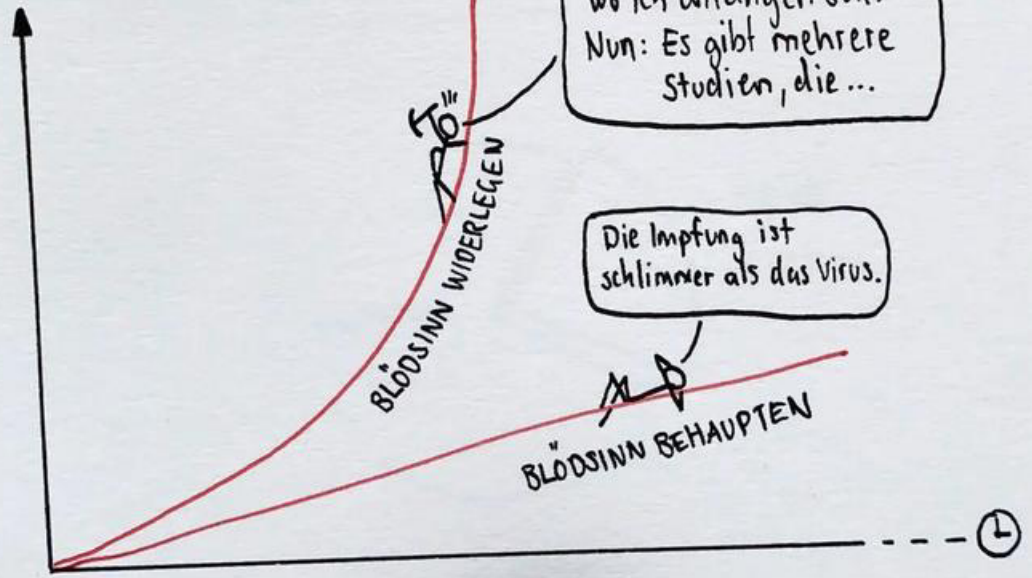 Nun: Es gibt mehrere
Studien, die ...
BLÖDSINN WIDERLEGEN
Die Impfung ist
schlimmer als das Virus.
BLÖDSINN BEHAUPTEN